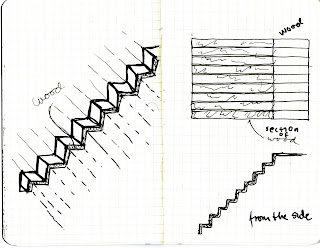 wood
wood
section
of
wood
from the side